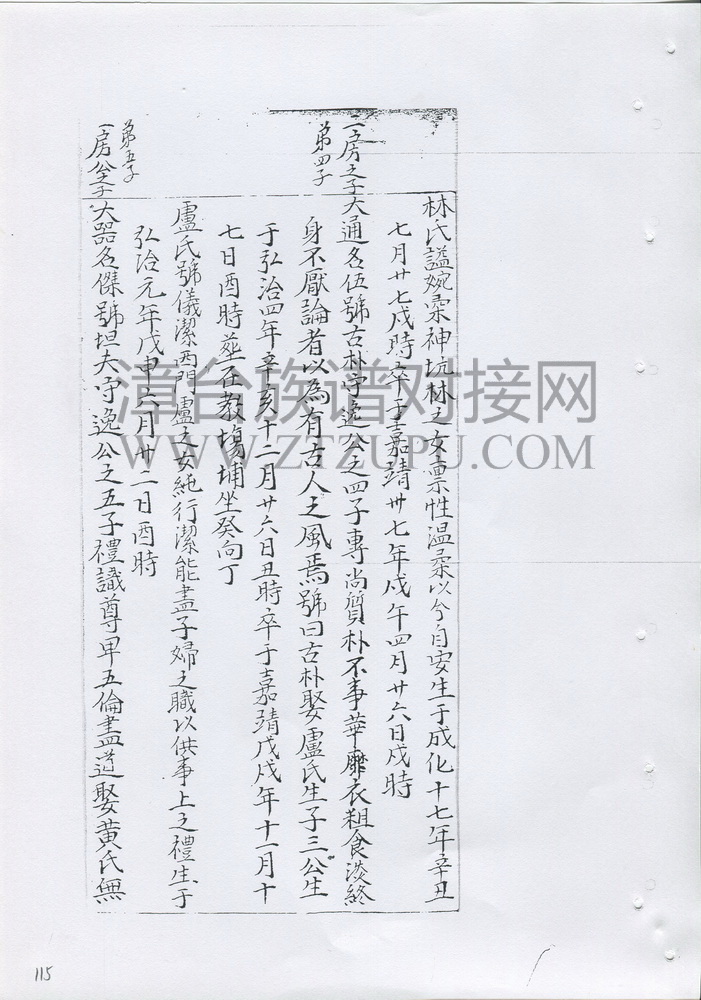 林氏謚婉柔神坑林之女禀性温柔以兮自安生于成化十七年辛丑
七月廿七戍時卒于嘉靖卅七年戍午四月廿六日戍時
二房之子
第四子
大通名伍號古朴守逸公之四子專尚質朴不事華靡衣粗食淡終
身不厭論者以為有古人之風焉號曰古朴娶盧氏生子三公生
于弘治四年辛亥十二月廿六日丑時卒于嘉靖戊戍年十一月十
七日酉時葬在教塲埔坐癸向丁
盧氏號儀潔西門盧之女純行潔能盡子婦之職以供事上之禮生于
弘治元年戊申六月廿二日酉時
第五子
一房
大器名傑號坦夫守逸公之五子禮識尊畢五倫盡道娶黄氏無
漳台族谱对接网
WWW.ZTZUPU.COM
115